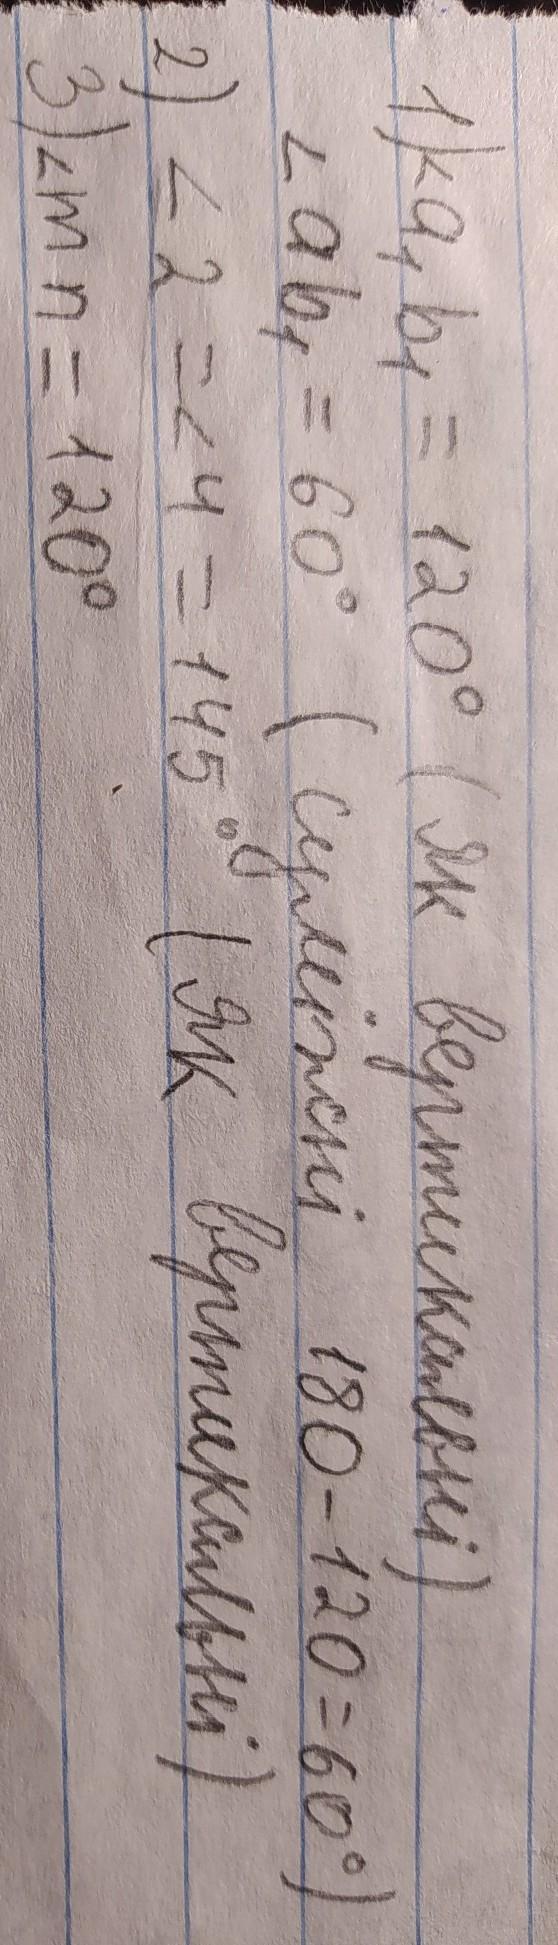 1) ∠a₁b₁ = 120° (як вертикальні)
∠ab₁ = 60° (суміжні 180-120=60°)
2) ∠2 = ∠4 = 145° (як вертикальні)
3) ∠mn = 120°